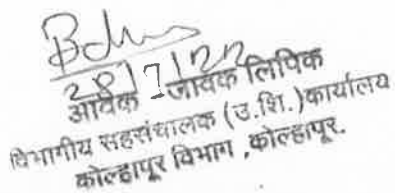 28/7/22
आवक जावक लिपिक
विभागीय सहसंचालक (उ.शि.)कार्यालय
कोल्हापूर विभाग ,कोल्हापूर.